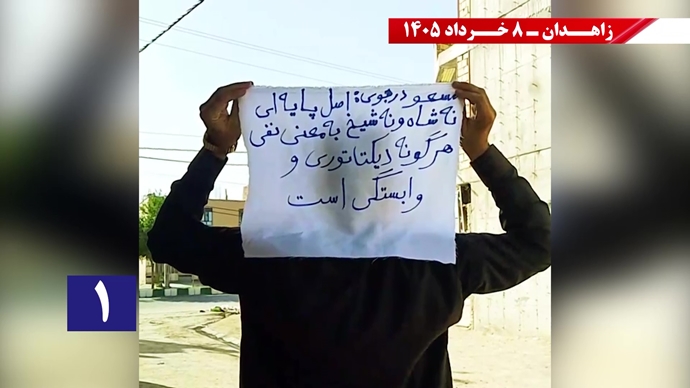 زاهدان ـ ۸ خرداد ۱۴۰۵
مسعود رجوی: اصل پایه‌ای
نه شاه و نه شیخ به معنی نفی
هرگونه دیکتاتوری و
وابستگی است
۱